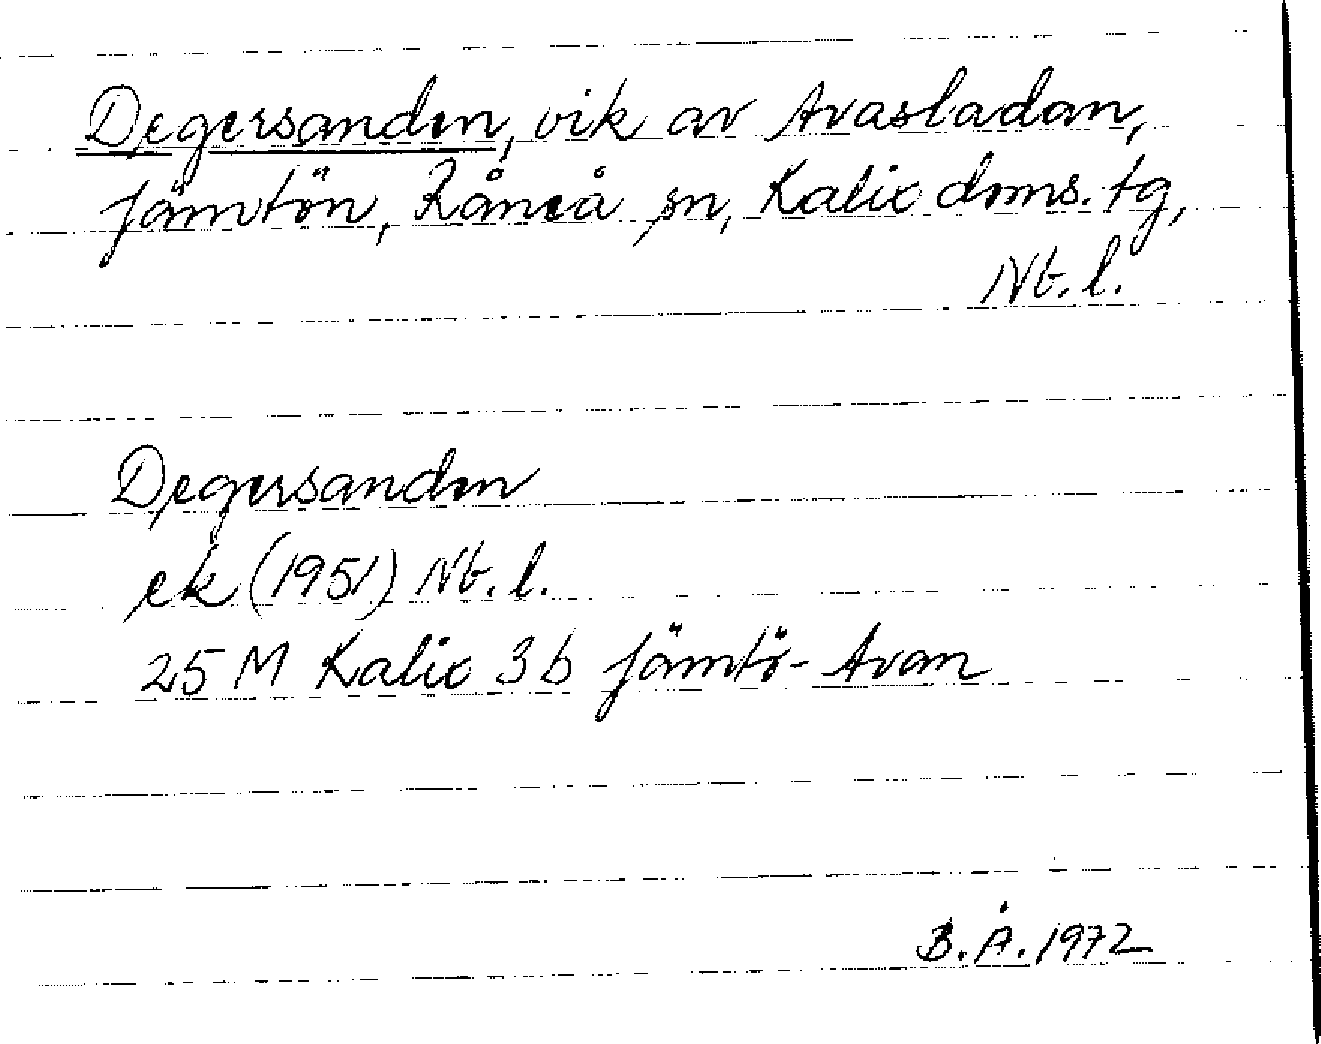 Degersanden, vik av Avasladan,
Jämtön, Råneå sn, Kalix doms. tg,
Nb. l.
Degersanden
ek (1951) Nb. l.
25 M Kalix 3 b Jämtö-Avan
B.Å. 1972